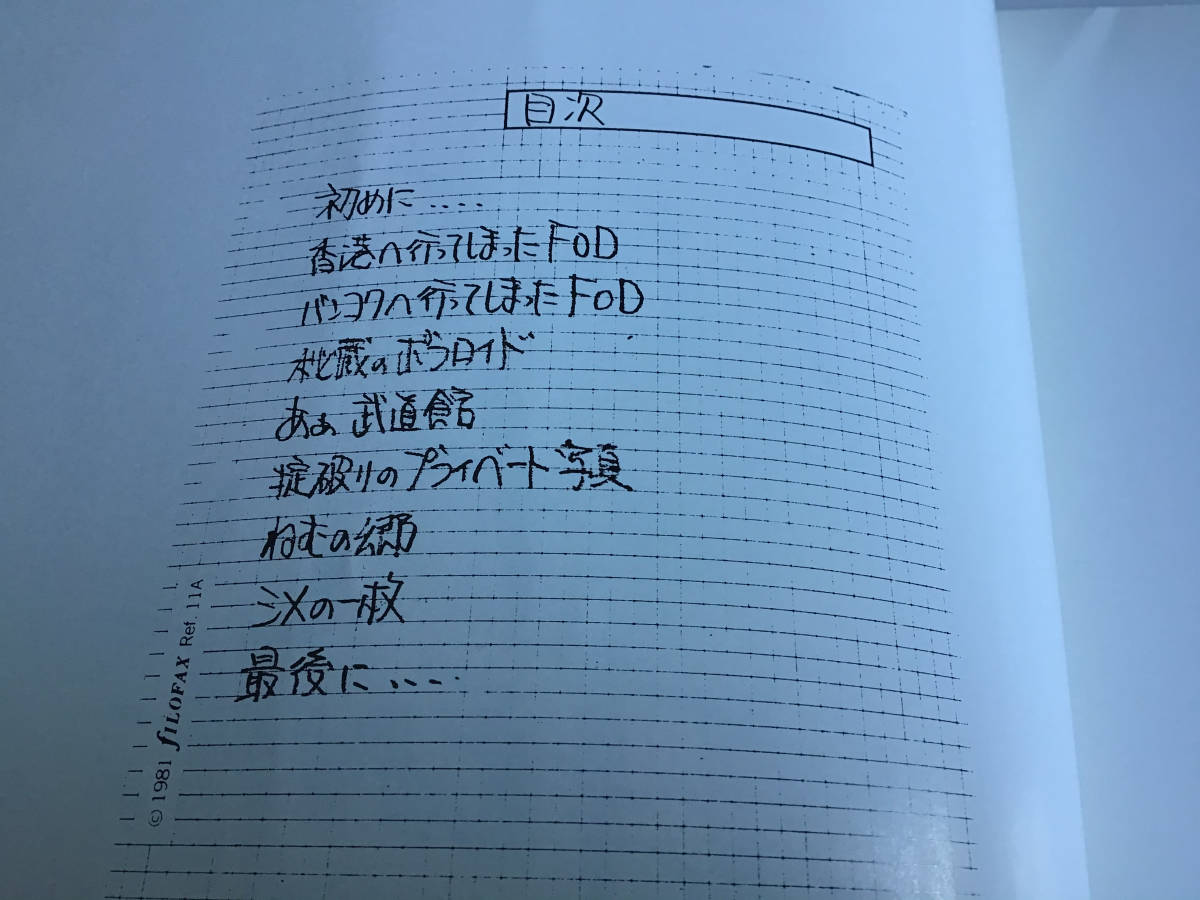 目次
初めに....
香港へ行ってしまったFOD
バンコクへ行ってしまったFOD
秘蔵のポラロイド
あぁ武道館
掟破りのプライベート写真
ねむの郷
シメの一枚
最後に....
© 1981 fiLOFAX Ref. 11A